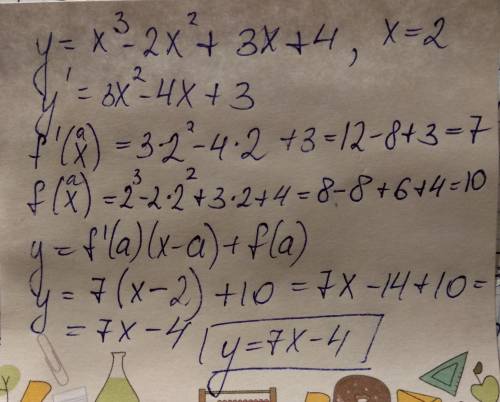 y = x³ - 2x² + 3x + 4 , x = 2
y' = 3x² - 4x + 3
f'(a/x) = 3·2² - 4·2 + 3 = 12 - 8 + 3 = 7
f(a/x) = 2³ - 2·2² + 3·2 + 4 = 8 - 8 + 6 + 4 = 10
y = f'(a)(x-a) + f(a)
y = 7(x-2) + 10 = 7x - 14 + 10 =
= 7x - 4 y = 7x - 4